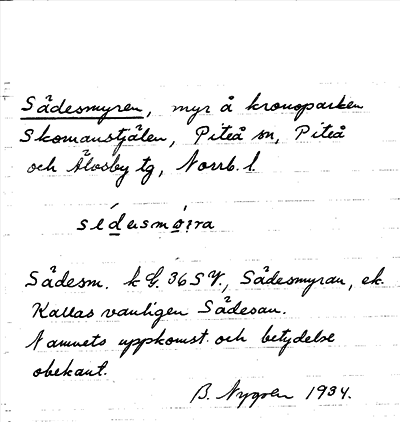 Sådesmyren, myr å kronoparken
Skomanstjälen, Piteå sn, Piteå
och Älvsby tg, Norrb. l.
Sådesm. k G. 36 S V., Sådesmyran, ek.
Kallas vanligen Sådesan.
Namnets uppkomst och betydelse
obekant.
B. Nygren 1934.